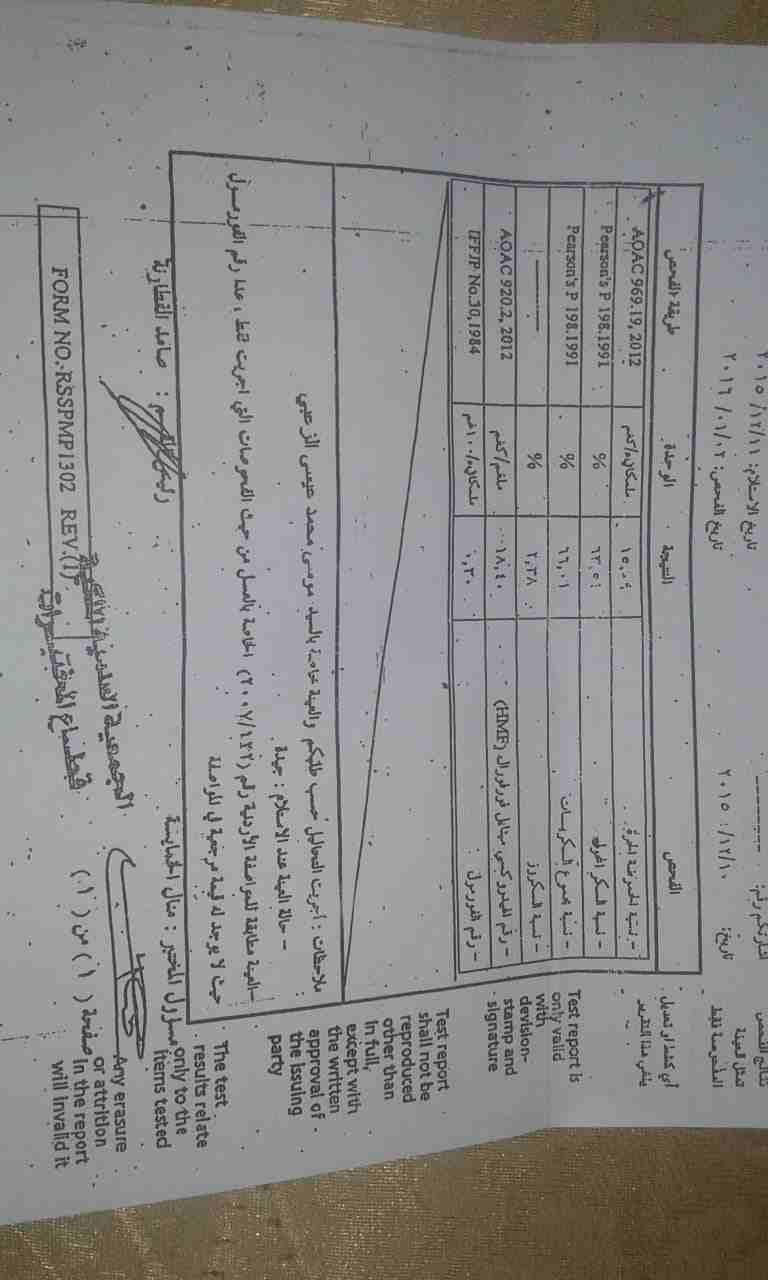 اشارتكم رقم:
تاريخ: ٢٠١٥/١٢/١٠
تاريخ الاستلام: ٢٠١٥/١٢/١١
تاريخ الفحص: ٢٠١٦/٠١/٠٢
نتائج الفحص
تمثل العينة
المفحوصة فقط
أي كشط او تعديل
يلغي هذا التقرير
الفحص النتيجة الوحدة طريقة الفحص
- نسبة الحموضة الحرة ١٥,٠٩ ملمكافئ/كغم AOAC 969.19, 2012
- نسبة السكر المحول % Pearson's P 198.1991
- نسبة مجموع السكريات ٦٦,٠١ % Pearson's P 198.1991
- نسبة السكروز ٢,٣٨ %
- رقم الهيدروكسي ميثايل فورفورال (HMF) ١٨,٤٠ ملغم/كغم AOAC 920.2, 2012
- رقم الفورمول ٠,٣٠ ملمكافئ/١٠٠غم IFFJP No.30, 1984
Test report is
only valid
with
devision-
stamp and
signature
Test report
shall not be
reproduced
other than
In full,
except with
the written
approval of
the issuing
party
ملاحظات : اجريت التحاليل حسب طلبكم والعينة خاصة بالسيد موسى محمد عيسى الزعبي
- حالة العينة عند الاستلام : جيدة
- العينة مطابقة للمواصفة الأردنية رقم (٢٠٠٧/١٣٢) الخاصة بالعسل من حيث الفحوصات التي اجريت فقط ، عدا رقم الفورمول
حيث لا يوجد له قيمة مرجعية في المواصفة
The test
results relate
only to the
items tested
مسؤول المختبر : منال رئيس القسم :
الجمعية العلمية الملكية
صفحة (١) من (٠١)
FORM NO.:RSSPMP1302 REV.(1)
Any erasure
or attrition
In the report
will invalid it